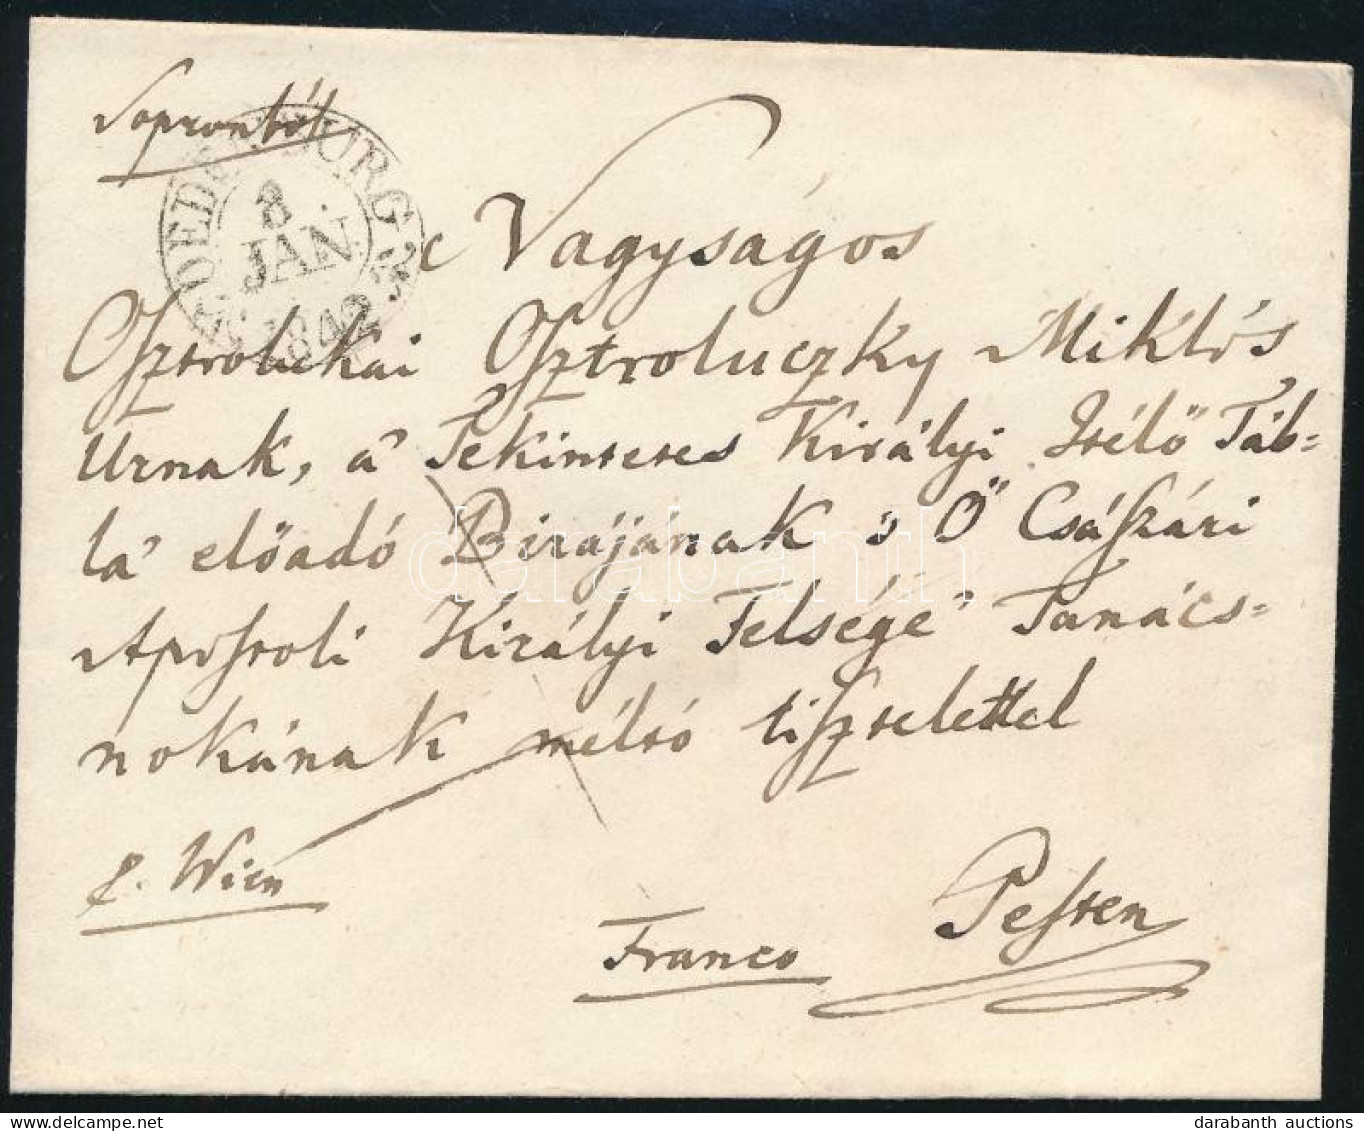 Soprontól
OEDENBURG
8.
JAN.
1842
Nagyságos
Osztrolukai Osztroluczky Miklós
Urnak, a' Tekintetes Királyi Itélő Táb=
la' előadó Birájának 's Ő Császári
Apostoli Királyi Felsége' Tanács=
nokának méltó tisztelettel
p. Wien
Franco
Pesten
darabanth
darabanth auctions